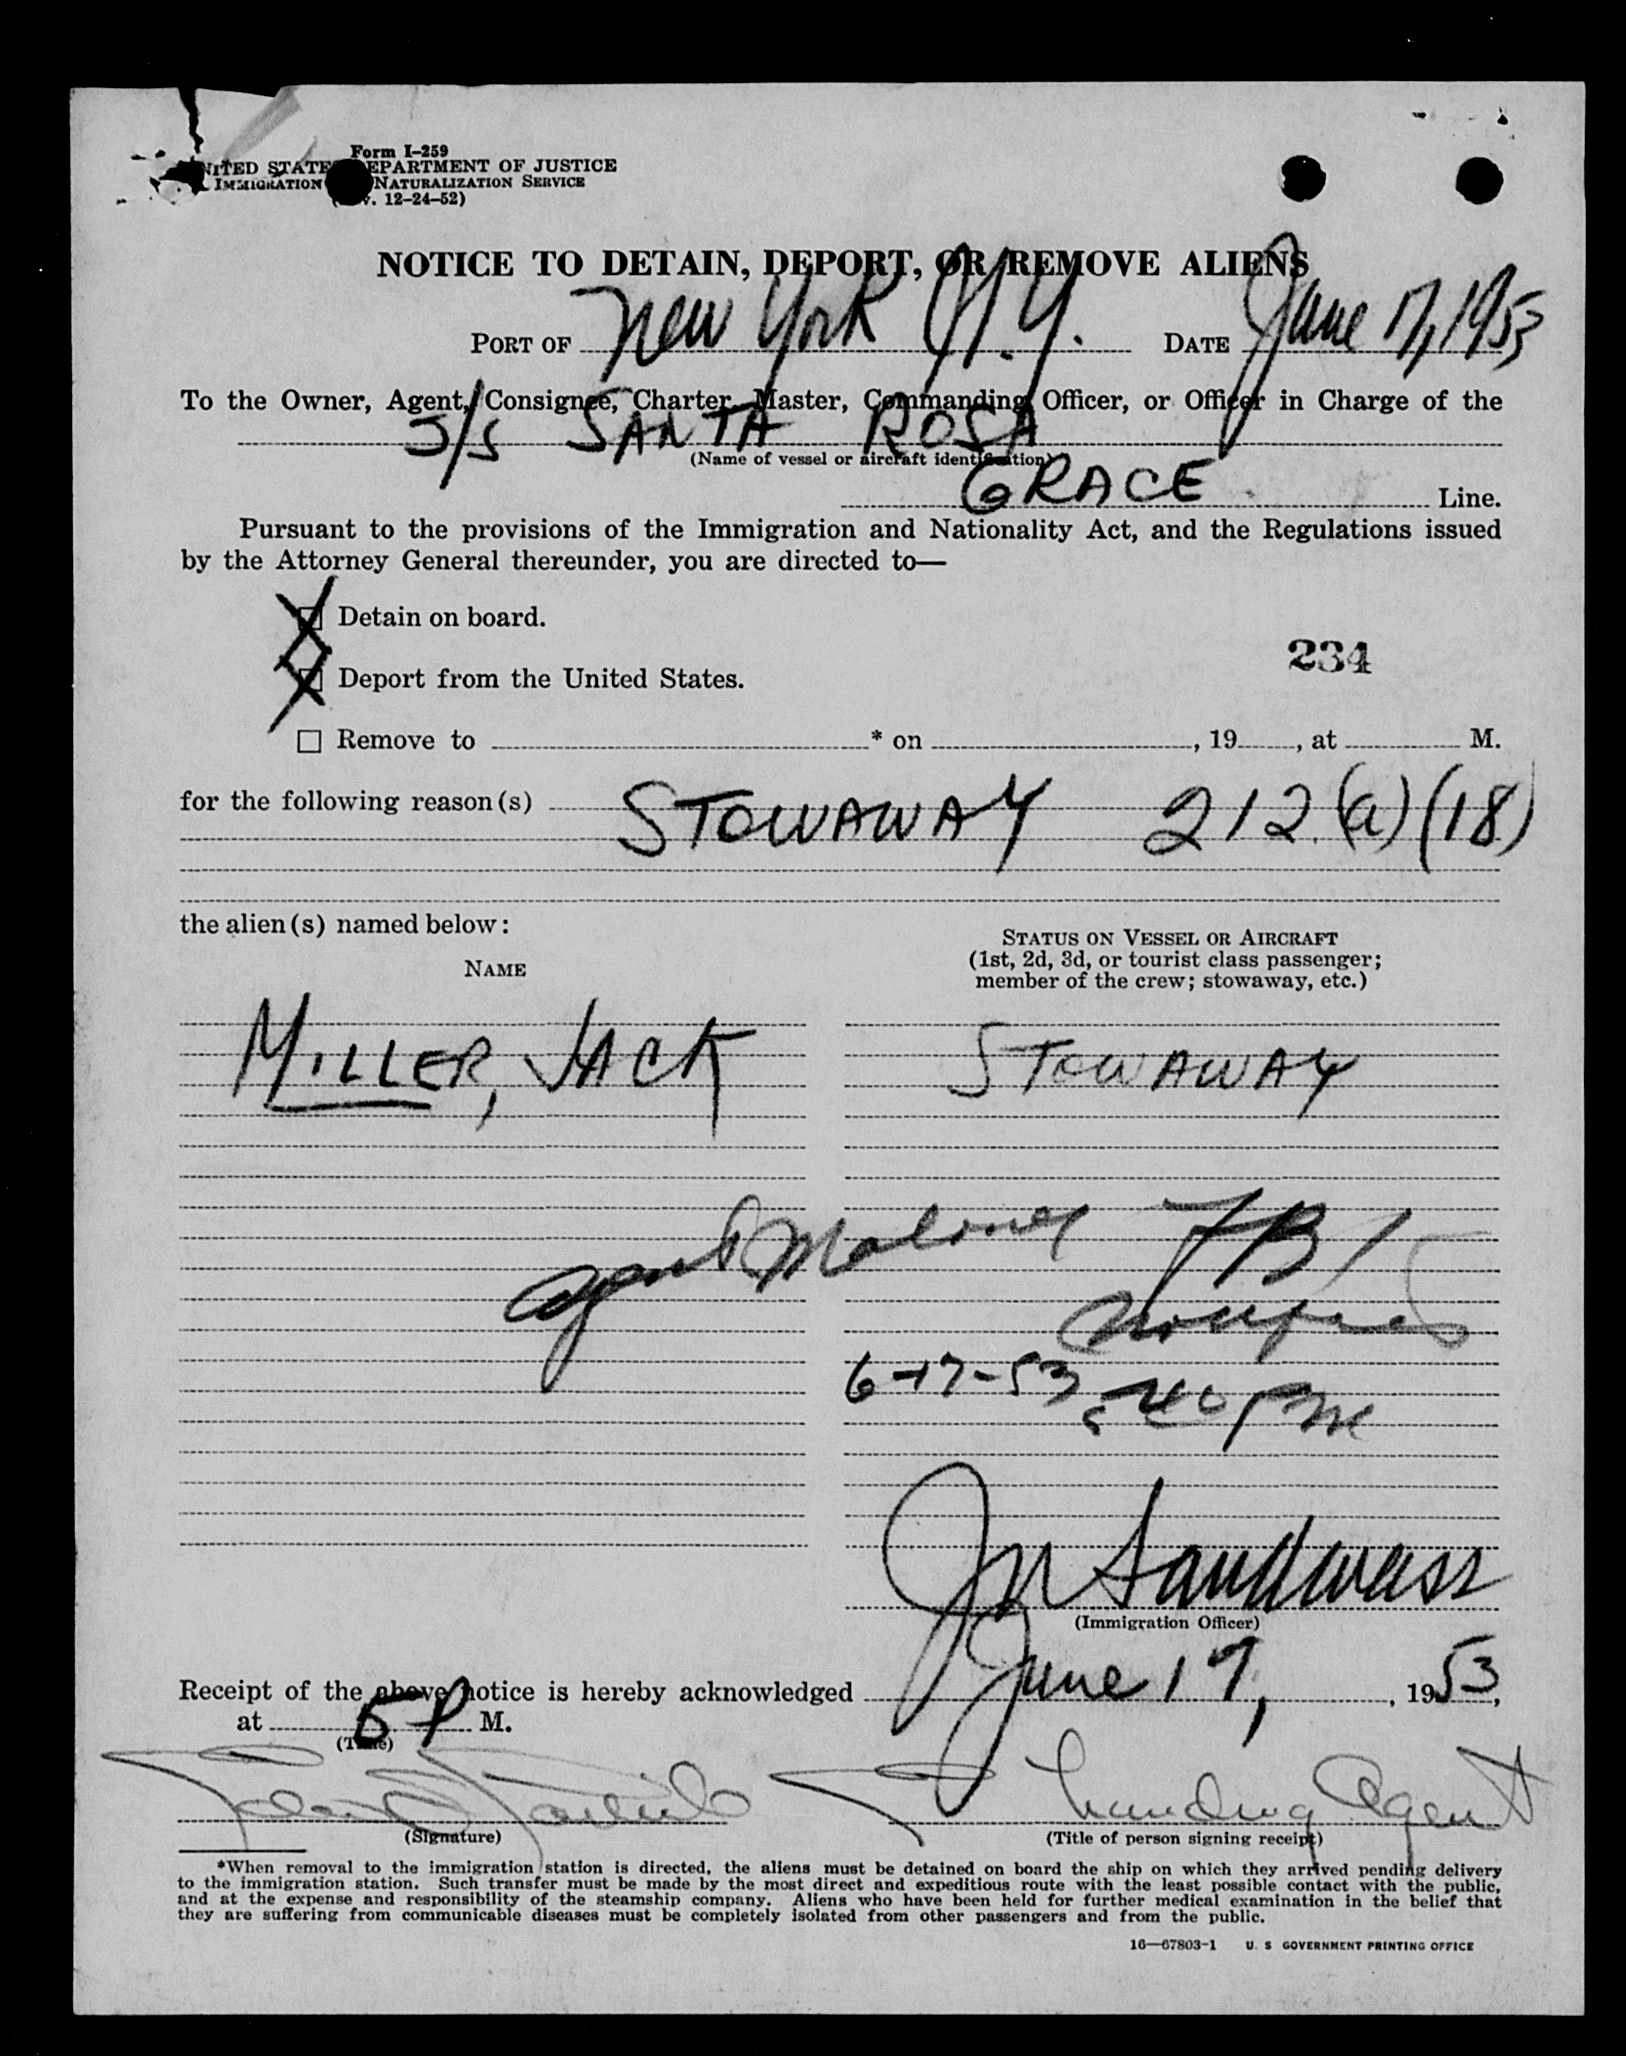 Form I-259
UNITED STATES DEPARTMENT OF JUSTICE
IMMIGRATION NATURALIZATION SERVICE
v. 12-24-52)
NOTICE TO DETAIN, DEPORT, OR REMOVE ALIENS
PORT OF New York N.Y. DATE June 17, 1953
To the Owner, Agent, Consignee, Charter, Master, Commanding Officer, or Officer in Charge of the
S/S SANTA ROSA
(Name of vessel or aircraft identification)
GRACE Line.
Pursuant to the provisions of the Immigration and Nationality Act, and the Regulations issued
by the Attorney General thereunder, you are directed to—
X Detain on board.
234
X Deport from the United States.
☐ Remove to * on , 19 , at M.
for the following reason(s) STOWAWAY 212(a)(18)
the alien(s) named below:
STATUS ON VESSEL OR AIRCRAFT
(1st, 2d, 3d, or tourist class passenger;
member of the crew; stowaway, etc.)
NAME
MILLER, JACK STOWAWAY
agent Maloney FBI
notified
6-17-53 540 PM
(Immigration Officer)
Receipt of the above notice is hereby acknowledged June 17, , 1953,
at 5 P M.
(Time)
Boarding Agent
(Signature) (Title of person signing receipt)
*When removal to the immigration station is directed, the aliens must be detained on board the ship on which they arrived pending delivery
to the immigration station. Such transfer must be made by the most direct and expeditious route with the least possible contact with the public,
and at the expense and responsibility of the steamship company. Aliens who have been held for further medical examination in the belief that
they are suffering from communicable diseases must be completely isolated from other passengers and from the public.
16—67803-1 U. S GOVERNMENT PRINTING OFFICE